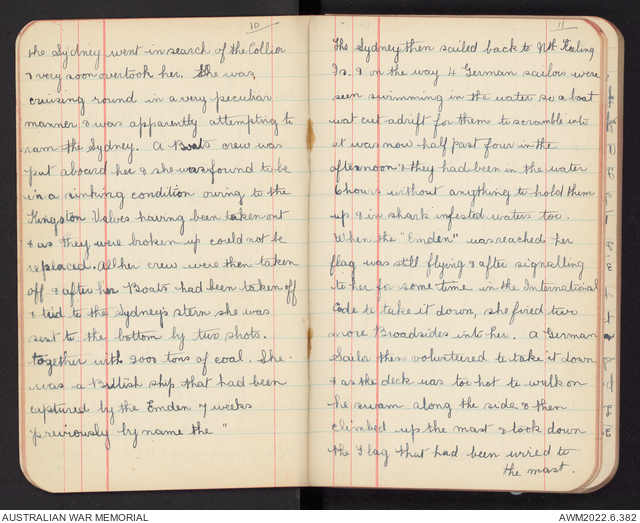 10
the Sydney went in search of the Collier
& very soon overtook her. She was
cruising round in a very peculiar
manner & was apparently attempting to
ram the Sydney. A Boats crew was
put aboard her & she was found to be
in a sinking condition owing to the
Kingston Valves having been taken out
& as they were broken up could not be
replaced. All her crew were then taken
off & after her Boats had been taken off
& tied to the Sydney's stern she was
sent to the bottom by two shots.
together with 2000 tons of coal. She
was a British ship that had been
captured by the Emden 7 weeks
previously by name the "
11
The Sydney then sailed back to Nth Keeling
Is. & on the way 4 German sailors were
seen swimming in the water so a boat
wat cut adrift for them to scramble into
it was now half past four in the
afternoon & they had been in the water
6 hours without anything to hold them
up & in shark infested waters too.
When the "Emden" was reached her
flag was still flying & after signalling
to her for some time in the International
Code to take it down, she fired two
more Broadsides into her. A German
Sailor then volunteered to take it down
& as the deck was too hot to walk on
he swam along the side & then
climbed up the mast & took down
the Flag that had been wired to
the mast.
AUSTRALIAN WAR MEMORIAL
AWM2022.6.382